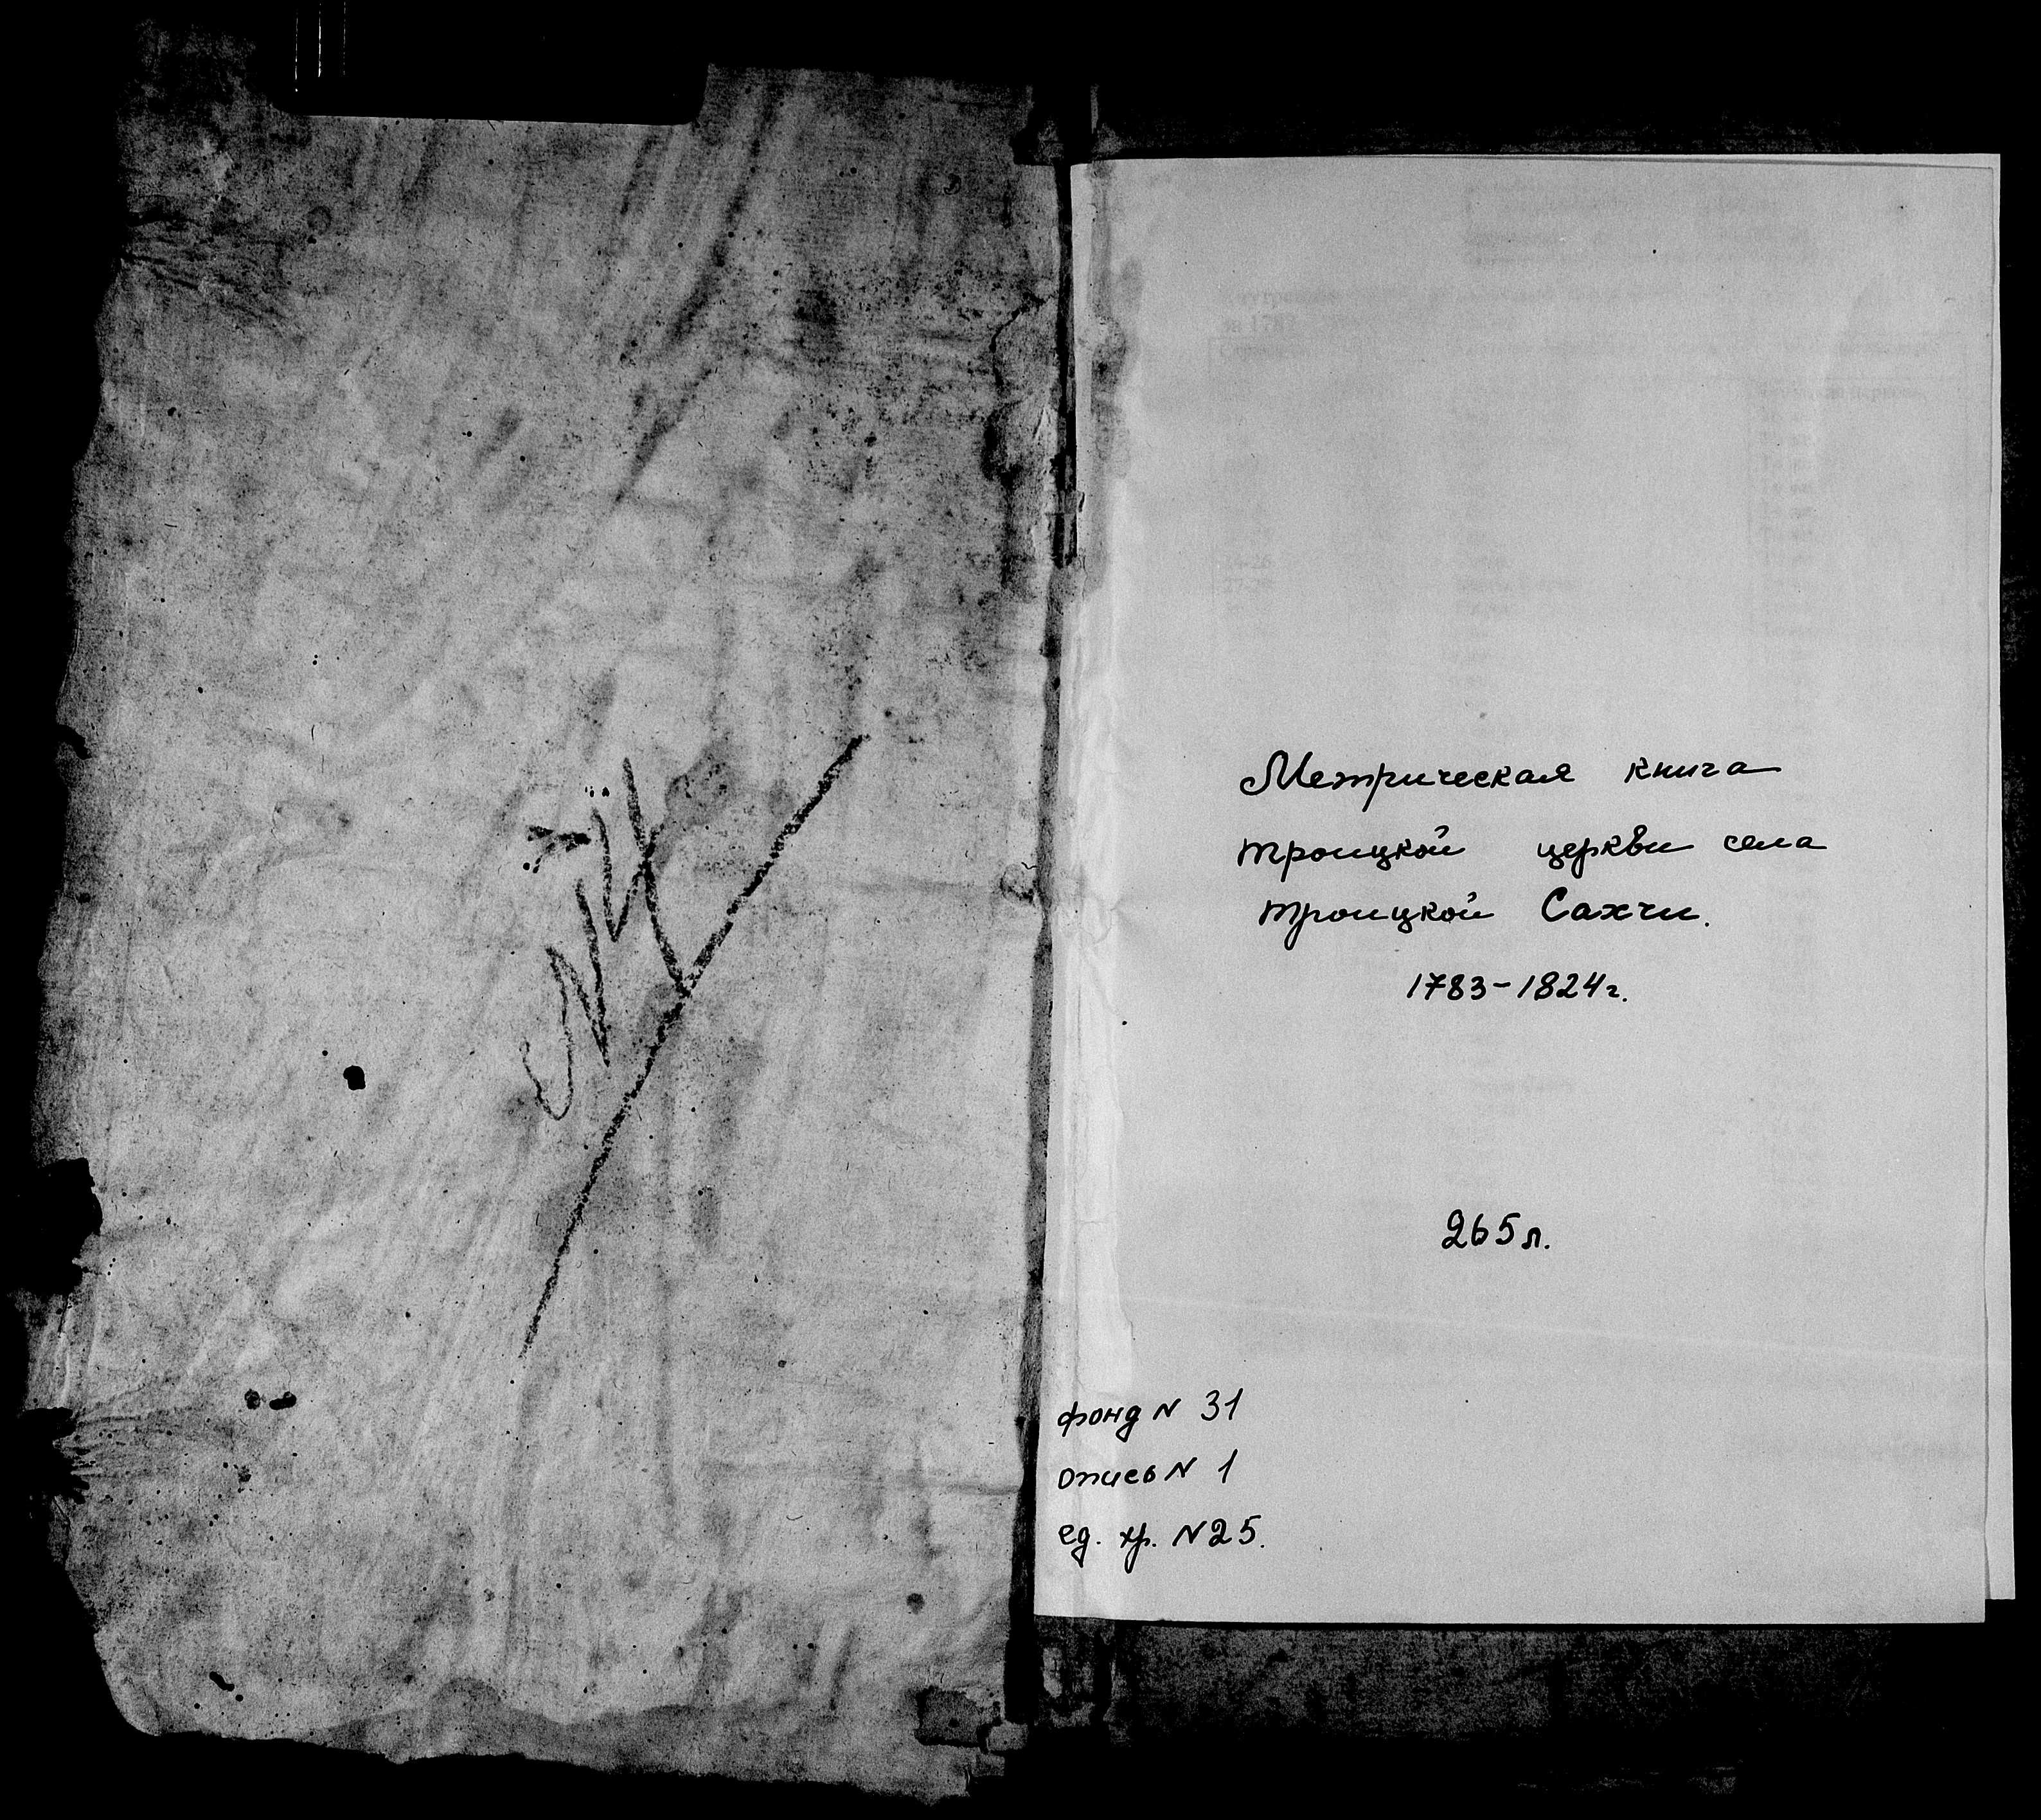 Метрическая книга
троицкой церкви села
троицкой Сахчи.
1783-1824г.
265л.
фонд N 31
опись N 1
ед. хр. N25.